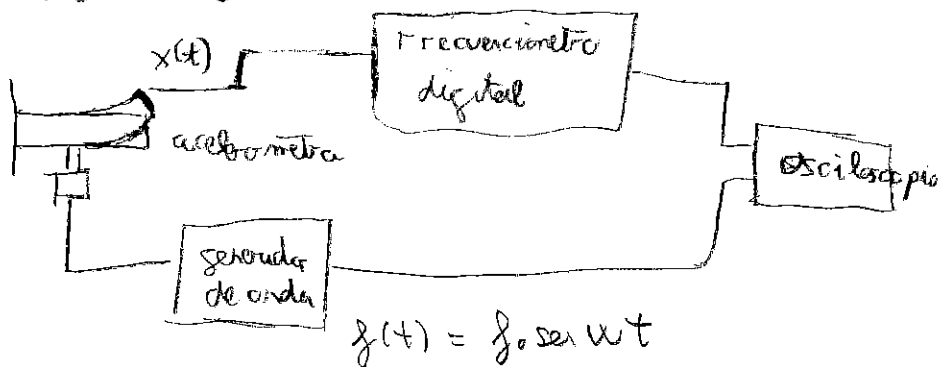 x(t)
Frecuenciometro
digital
acelerometro
osciloscopio
generador
de onda
f(t) = f₀ sen wt